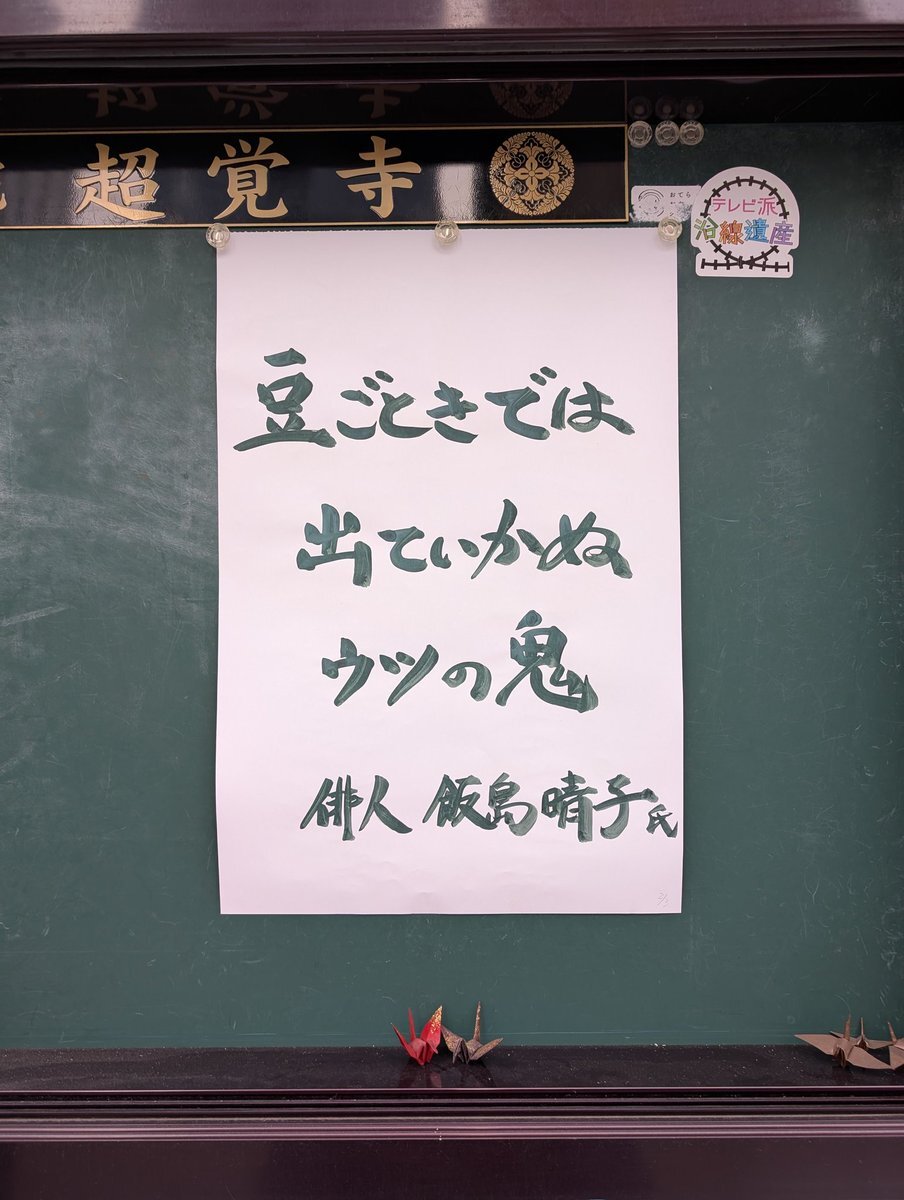 超覚寺
おてら
テレビ派
沿線遺産
豆ごときでは
出ていかぬ
ウツの鬼
俳人 飯島晴子氏
2/3